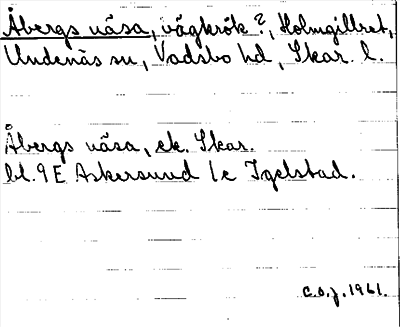 Åbergs näsa, vägkrök?, Holmgillret,
Undenäs sn, Vadsbo hd, Skar. l.
Åbergs näsa, ek. Skar.
bl. 9 E Askersund 1c Igelstad.
C.O.J. 1961.